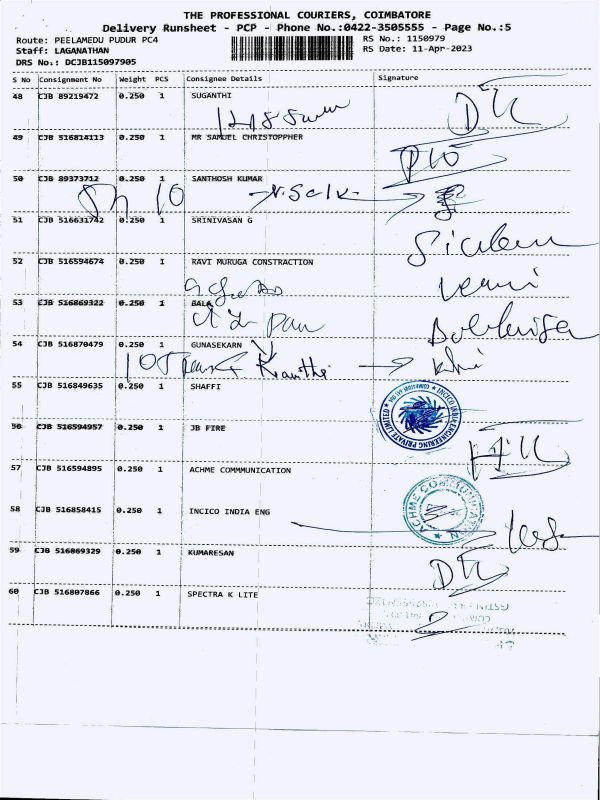 THE PROFESSIONAL COURIERS, COIMBATORE
Delivery Runsheet - PCP - Phone No.:0422-3505555 - Page No.:5
Route: PEELAMEDU PUDUR PC4
RS No.: 1150979
Staff: LAGANATHAN
RS Date: 11-Apr-2023
DRS No.: DCJB115097905
S No Consignment No Weight PCS Consignee Details Signature
48 CJB 89219472 0.250 1 SUGANTHI
49 CJB 516814113 0.250 1 MR SAMUEL CHRISTOPPHER
50 CJB 89373712 0.250 1 SANTHOSH KUMAR
51 CJB 516631742 0.250 1 SRINIVASAN G
52 CJB 516594674 0.250 1 RAVI MURUGA CONSTRACTION
53 CJB 516869322 0.250 1 BALA
54 CJB 516870479 0.250 1 GUNASEKARN
55 CJB 516849635 0.250 1 SHAFFI
INCICO INDIA ENGINEERING PRIVATE LIMITED
56 CJB 516594957 0.250 1 JB FIRE
57 CJB 516594895 0.250 1 ACHME COMMMUNICATION
ACHME COMMUNICATION
58 CJB 516858415 0.250 1 INCICO INDIA ENG
59 CJB 516869329 0.250 1 KUMARESAN
60 CJB 516807866 0.250 1 SPECTRA K LITE